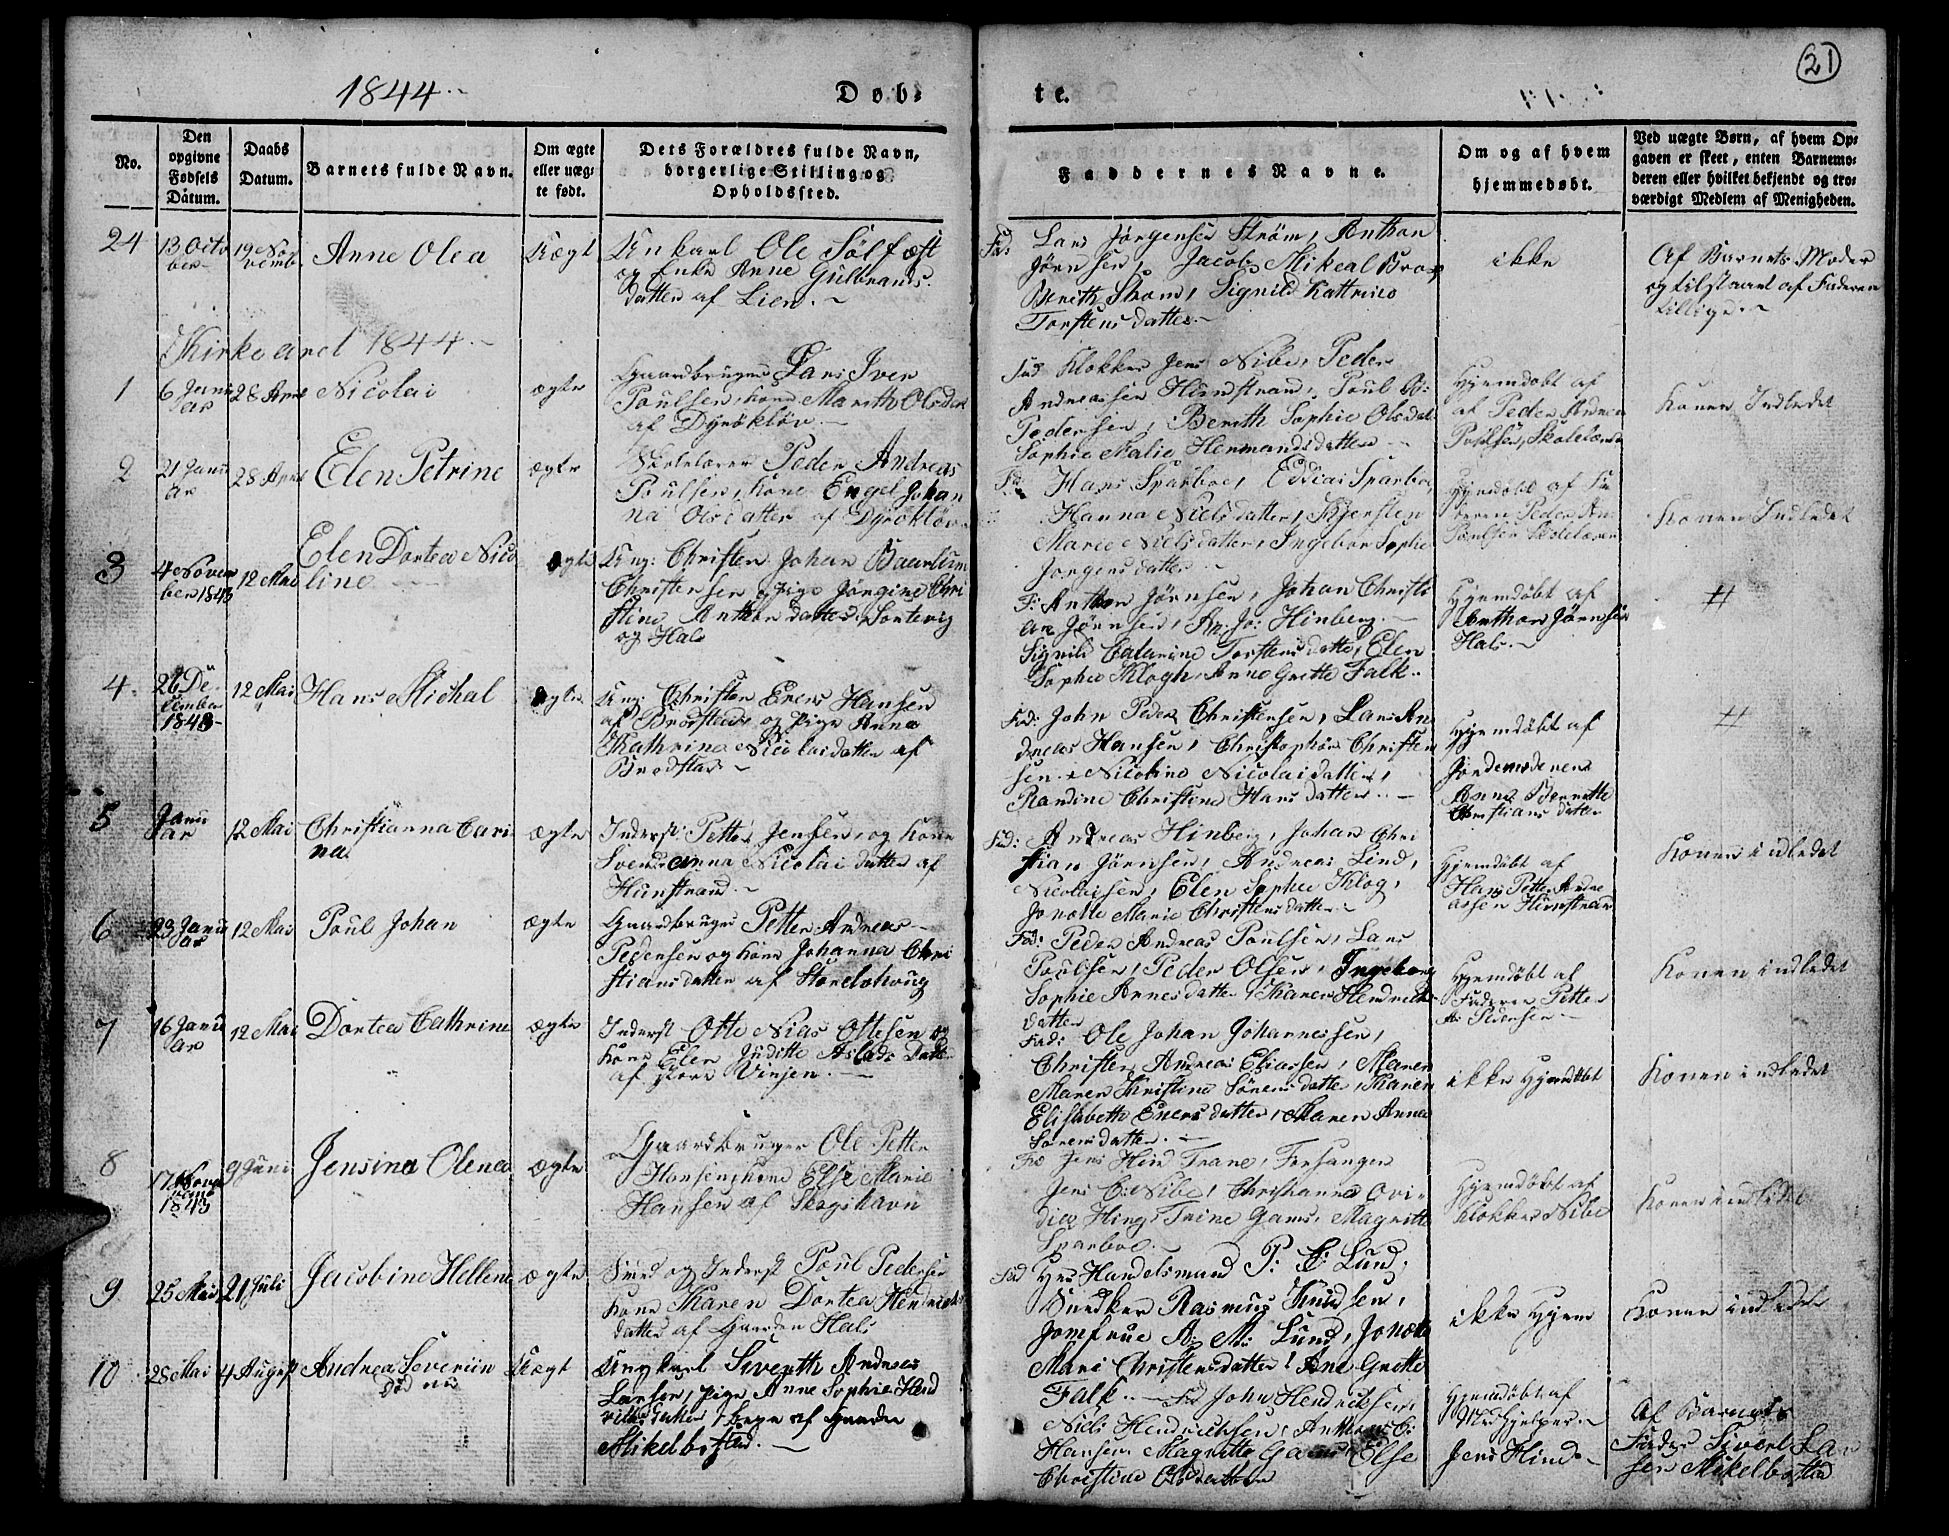 1844.
Døb=
te.
21
No.
Den
opgivne
Fødsels
Datum.
Daabs
Datum.
Barnets fulde Navn.
Om ægte
eller uæg-
te født.
Dets Forældres fulde Navn,
borgerlige Stilling og
Opholdssted.
Faddernes Navne.
Om og af hvem
hjemmedøbt.
Ved uægte Børn, af hvem Op-
gaven er skeet, enten Barnemo-
deren eller hvilket bekjendt og tro-
værdigt Medlem af Menigheden.
24
13 Octo
ber
19 No
vemb.
Anne Olea
Uægt
Unkarl Ole Sølfæst
og Enke Anne Gulbrands
datter af Lien.
Lars Jørgensen Strøm, Anthon
Jørnsen, Jacob Mikeal
Berith Strøm, Signild Kattrine
Torstensdatter.
ikke
Af Barnets Moder
og tilstaaet af Faderen
tillige.
Kirkeaaret 1844.
1
6 Janu
ar
28 April
Nicolai
ægte
Gaardbruger Lars Iver
Poulsen, kone Marith Olsdat
af Dyrökløv.
Fad Klokker Jens Nibe, Peder
Andreassen Hunstrand, Poul
Pedersen, Bereth Sophie Olsdat
Sophie Malie Hermandsdatter
Hjemdøbt af
af Peder Andrea
Poulsen, Skolelærer
Konen Indledet
2
21 Janu
ar
28 April
Elen Petrine
ægte
Skolelærer Peder Andreas
Poulsen, kone Engel Johan
na Olsdatter af Dyrökløv
Hans Sparboe, Eddias Sparboe,
Hanna Nielsdatter, Kjersten
Marie Nielsdatter, Ingebor Sophie
Jørgensdatter
Hjemdøbt af Fa
deren Peder An
Poulsen Skolelærer
Konen Indledet
3
4 Novem
ber 1843
12 Mai
Elen Dortea Nico
line
ægte
Ung: Christen Johan Baarlum
Christensen og pige Jörgine Chri
stine Anthondatter, Sortevig
og Hals
F: Anthon Jörnsen, Johan Christi
an Jörnsen, An: Jo: Hinberg.
Signild Catarine Torstensdatte, Elen
Sophie Klogh, Anne Grette Falk..
Hjemdøbt af
Anthon Jörnsen
Hals.
//
4.
26 De-
cember
1843
12 Mai
Hans Michal
ægte
Ung: Christen Evers Hansen
af Brodstad og Pige Anna
Kathrina Nicolaidatter af
Brodstad
Fad: John Peder Christensen, Lars An
dreas Hansen, Christophör Christen
sen. Nicoline Nicolaidatter,
Randine Christine Hansdatter.
Hjemdøbt af
Jordemoderen
Anna Berrette
Christiansdatter
//
5
Janu
ar
12 Mai
Christianna Cari
na
ægte
Inderst: Petter Jensen, og kone
Svendsanna Nicolaidatter af
Hunstrand.
Fad: Andreas Hinberg, Johan Chri
stian Jörnsen, Andreas Lind,
Nicolaisen, Elen Sophie Klog,
Jonette Marie Christensdatter
Hjemdøbt af
Hans Petter Andre
assen Hunstrand
Konen indledet
6
23 Janu
ar
12 Mai
Poul Johan
ægte
Gaardbruger Petter Andreas
Pedersen og kone Johanna Chri
stiansdatter af
Fad: Peder Andreas Poulsen, Lars
Poulsen, Peder Olsen, Ingeborg
Sophie Arnesdatter, Karen Hendrick
datter
Hjemdøbt af
Faderen Petter
A: Pedersen
Konen indledet
7
16 Janu
ar
12 Mai
Dortea Cathrine
ægte
Inderst Otte Nias Ottesen og
kone Elen Juditte Aslaks Datte
af store Vinjen.
Fad: Ole Johan Johannessen,
Christen Andreas Eliassen, Maren
Maren Kristine Sörensdatter, Karen
Elisabette Eversdatter, Maren Anna
Sörensdatter.
ikke Hjemdøbt
Konen indledet
8
17 Nov
vemb
1843
9 Juni
Jensina Olena
ægte
Gaardbruger Ole Petter
Hansen, kone Else Marie
Hansen af Skogshavn
Fad Jens Hind Trane, Forsanger
Jens C: Nibe, Christianna Ovi-
diea Hing, Trine Gams, Magritte
Sparboe.
Hjemdøbt af
Klokker Nibe
Konen indledet
9
25 Mai
21 Juli
Jacobine Hellene
ægte
Smed og Inderst Poul Pedersen
kone Karen Dortea Hendrichs
datter af Gaarden Hals
Fad Hr Handelsmand P: E: Lund,
Snedker Rasmus Knudsen,
Jomfrue A: M: Lund, Jonette
Mari Christensdatter, Ane Grette
Falk.
ikke Hjem
Konen indledet
10
28 Mai
4 August
Andrea Soveriin
död nu
Uægt
Ungkarl Siverth Andreas
Larsen, pige Anne Sophie Hend
richsdatter, begge af Gaarden
Mikelbostad.
Fad John Hendricksen
Niels Hendrichsen, Anthon C:
Hansen Magritte Gams Else
Christine Olsdatter
Hjemdøbt af
Medhjelper
Jens Hind
Af Barnets
Fader Sivert Lar
sen Mikelbostad